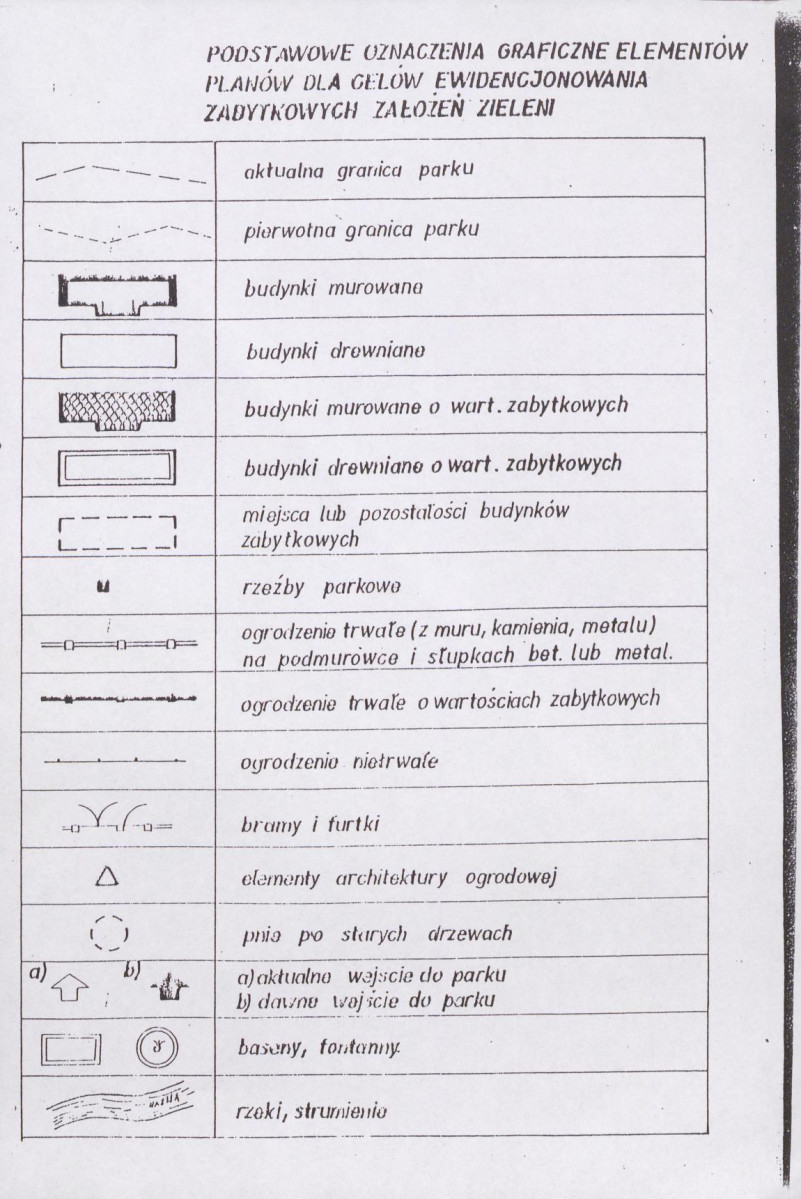 PODSTAWOWE OZNACZENIA GRAFICZNE ELEMENTÓW
PLANÓW DLA CELÓW EWIDENCJONOWANIA
ZABYTKOWYCH ZAŁOŻEŃ ZIELENI
aktualna granica parku
pierwotna granica parku
budynki murowane
budynki drewniane
budynki murowane o wart. zabytkowych
budynki drewniane o wart. zabytkowych
miejsca lub pozostałości budynków
zabytkowych
rzeźby parkowe
ogrodzenie trwałe (z muru, kamienia, metalu)
na podmurówce i słupkach bet. lub metal.
ogrodzenie trwałe o wartościach zabytkowych
ogrodzenie nietrwałe
bramy i furtki
elementy architektury ogrodowej
pnie po starych drzewach
a) b)
a) aktualne wejście do parku
b) dawne wejście do parku
baseny, fontanny
rzeki, strumienie